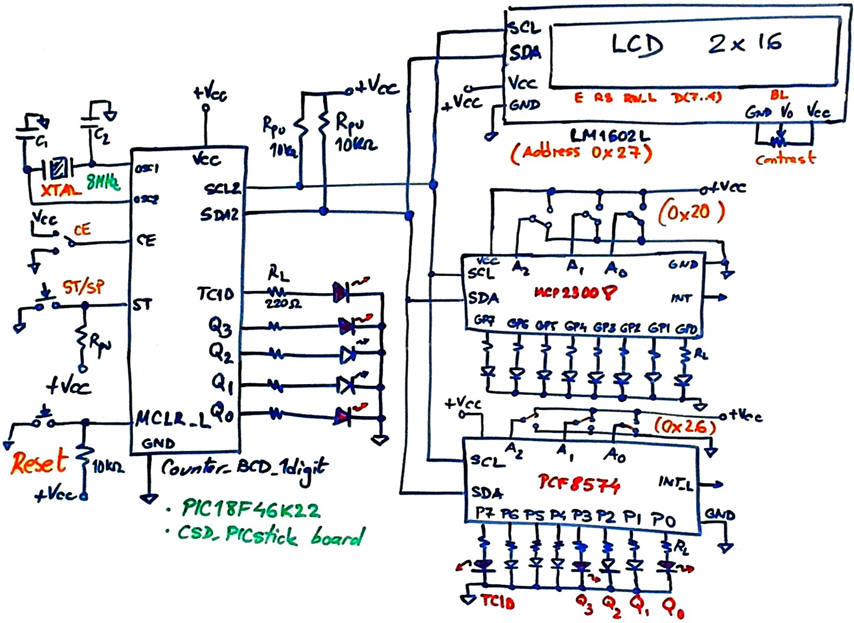 C1
C2
XTAL
8MHz
OSC1
OSC2
+Vcc
Vcc
Vcc
CE
CE
ST/SP
ST
Rpu
+Vcc
MCLR_L
Reset
10KΩ
+Vcc
GND
SCL2
SDA2
TC1D
Q3
Q2
Q1
Q0
RL
220Ω
Rpu
10KΩ
Rpu
10KΩ
+Vcc
Counter_BCD_1digit
· PIC18F46K22
· CSD_PICstick board
SCL
SDA
Vcc
GND
+Vcc
LCD 2x16
E RS RW_L D(7..4) BL
GND Vo Vcc
LM1602L
(Address 0x27)
Contrast
+Vcc
(0x20)
Vcc
A2 A1 A0
GND
SCL
SDA
MCP23008
INT
GP7 GP6 GP5 GP4 GP3 GP2 GP1 GP0
RL
+Vcc
+Vcc
(0x26)
A2 A1 A0
SCL
SDA
PCF8574
INT_L
GND
P7 P6 P5 P4 P3 P2 P1 P0
RL
TC1D Q3 Q2 Q1 Q0